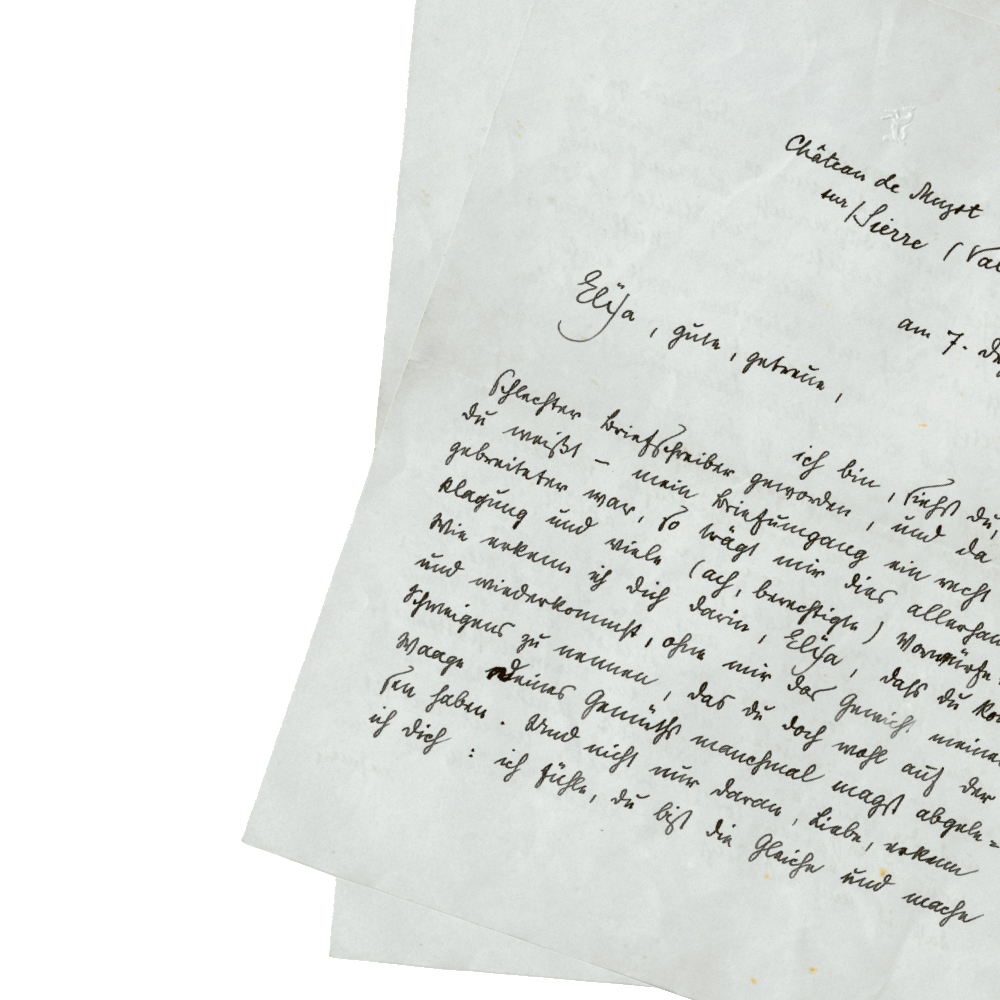 Château de Muzot
sur/Sierre (Val
am 7. De
Elya, gute, getreue,
ich bin, siehst du,
Schlechter Briefschreiber geworden, und da
du weißt – mein Briefumgang ein recht
gebreiteter war, so trägt mir dies allerhan
klagung und viele (ach, berechtigte) Vorwürfe
Wie erkenn ich dich darin, Elya, dass du
und wiederkommst, ohne mir das Gewicht meines
Schweigens zu nennen, das du doch wohl auf der
Waage deines Gemüths manchmal magst abgele=
sen haben. Und nicht nur daran, Liebe, erkenn
ich dich: ich fühle, du bist die Gleiche und mache